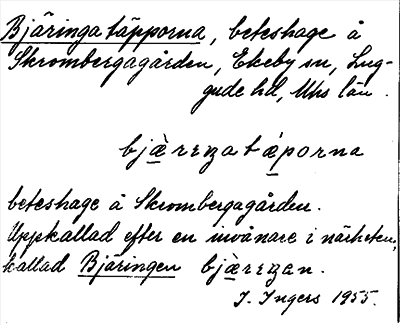 Bjäringa täpporna, beteshage å
Skrombergagården, Ekeby sn, Lug-
gude hd, Mhs län.
bjæ̀rɪŋa tǽporna
beteshage å Skrombergagården.
Uppkallad efter en invånare i närheten,
kallad Bjäringen bjæ̀rɪŋan.
I. Ingers 1955.